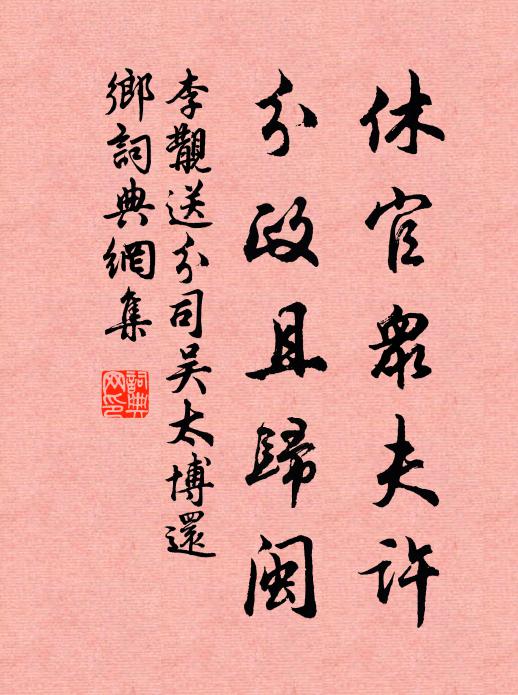 休官衆夫許
分政且歸閩
李覯送分司吴太博還
鄉詞典網集
詞典网印